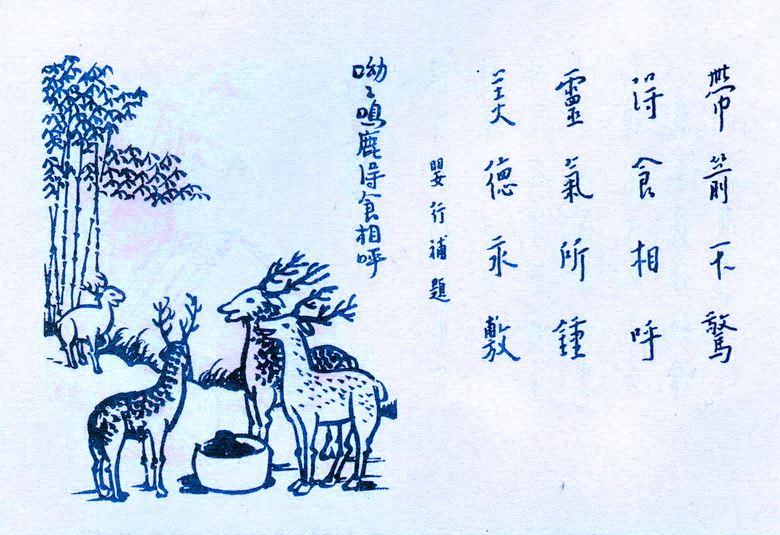 帶箭不驚
得食相呼
靈氣所鍾
美德永敷
嬰行補題
呦〻鳴鹿得食相呼